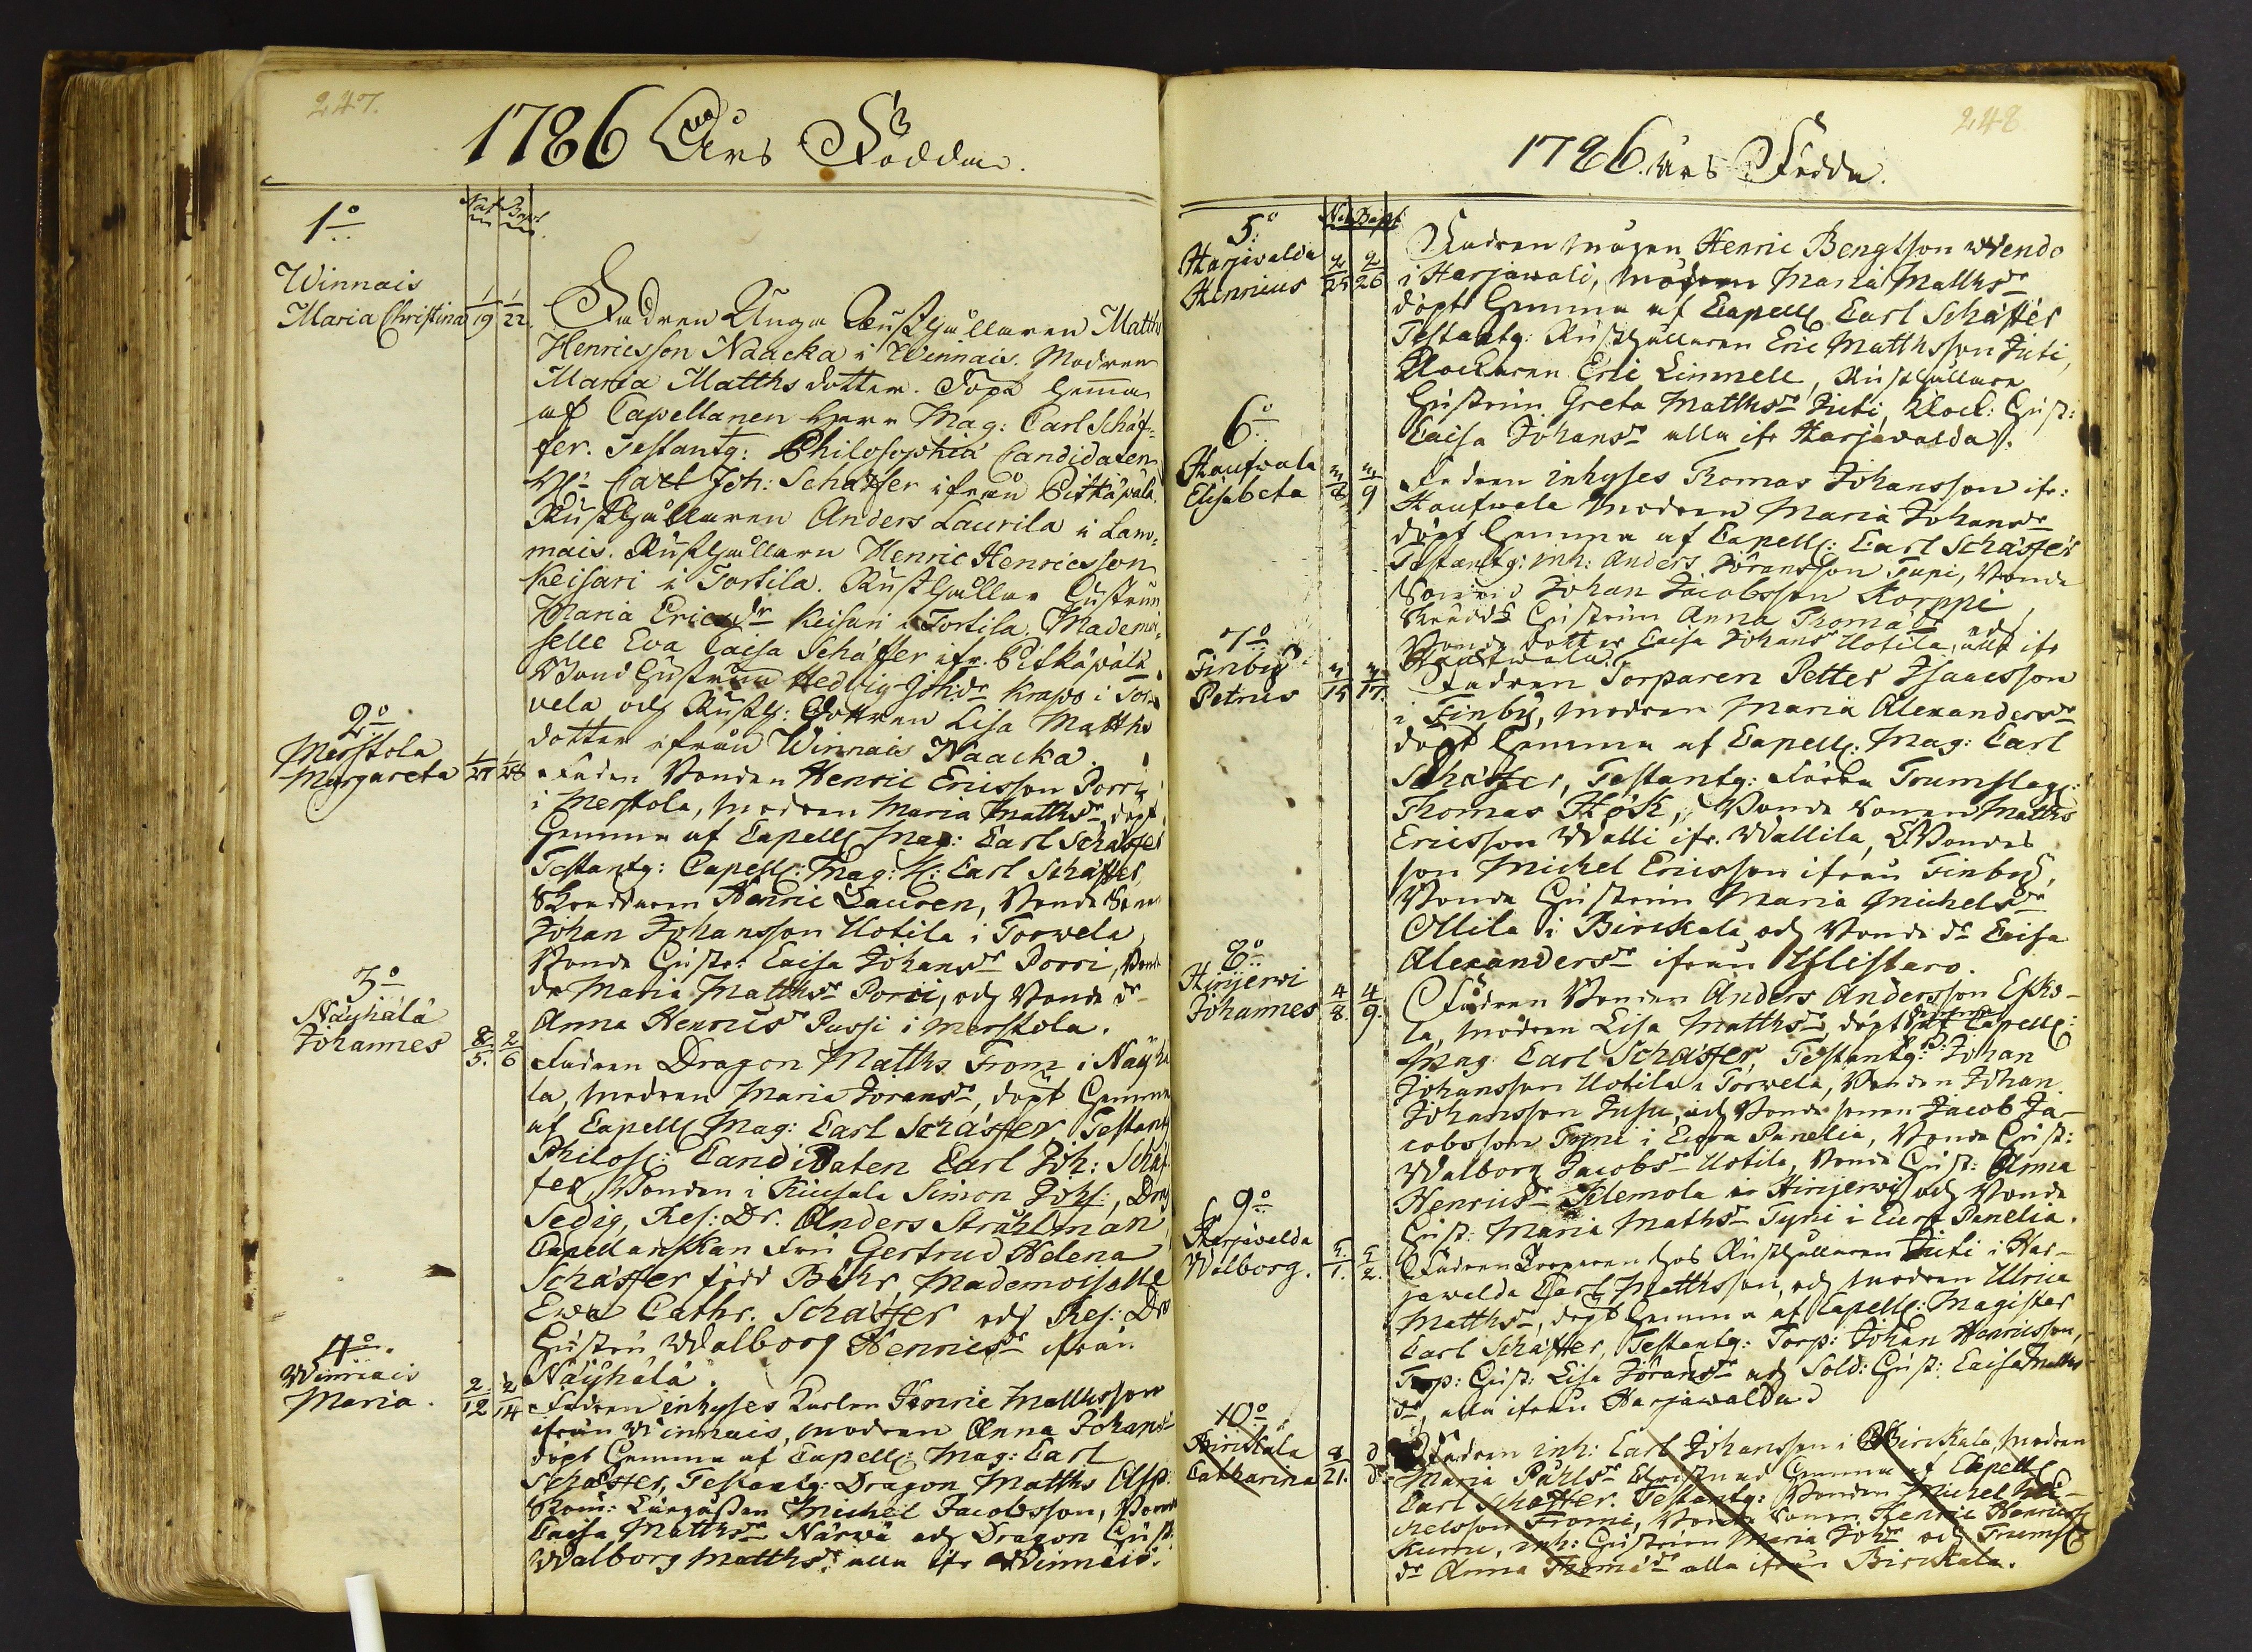 247.
1786 Års Födda.
1o
Nat. Bapt.
Winnais
Maria Christina 1/19 1/22.
Fadren Unga Rusthållaren Matths
Henricsson Naacka i Winnais. Modren
Maria Matths dotter. Döpt hemma
af Capellanen Herr Mag: Carl Schäf-
fer. Testantg: Philosophiæ Candidaten
Hr Carl Joh: Schäffer ifrån Pitkäpälä.
Rusthållaren Anders Laurila i Lam-
mais. Rusthållarn Henric Henricsson
Keisari i Torttila. Rusthållar Hustrun
Maria Ericsdr Keisari i Tortila. Mademoi-
selle Eva Caisa Schäffer ifr. Pitkäpälä
Bond Hustrun Hedvig Johdr Krapo i Tor-
vela och Rusth: Dottren Lisa Matths
dotter ifrån Winnais Naacka.
2o
Merstola
Margareta 1/27 1/28
Fadren Bonden Henric Ericsson Porri
i Merstola, modren Maria Matthsdr, döpt
hemma af Capell: Mag: Carl Schäffer
Testantg: Capell: Mag: H: Carl Schäffer,
Skräddaren Henric Lauren, Bonde Sonen
Johan Johansson Uotila i Torwela,
Bonde Hustr: Caisa Johansdr Porri, Bonde
dr Maria Matthsdr Porri, och Bonde dr
Anna Henricsdr Pussi i Merstola.
3o
Näyhälä
Johannes 2/5. 2/6
Fadren Dragon Matths From i Näyhä
la, modren Maria Jöransdr, döpt hemma
af Capell: Mag: Carl Schäffer, Testant
Philos: Candidaten Carl Joh: Schäf
fer, Bonden i Kiusala Simon Johs:, Drag
Sedig, Res: Dr. Anders Stråhlman,
Capellanskan Fru Gertrud Helena
Schäffer född Bähr, Mademoiselle
Eva Cathr. Schäffer och Res: Dr
Hustru Walborg Henricsdr ifrån
Näyhälä.
4o
Winnais
Maria. 2/12 2/14
Fadren inhyses Karlen Henric Matthsson
ifrån Winnais, modren Anna Johansdr
döpt hemma af Capell: Mag: Carl
Schäffer, Testantg: Dragon Matths Asp.
Michel Jacobsson,
Caisa Matthsdr Närwä och Dragon Hust.
Walborg Matthsdr alla ifr Winnais.
248
1786. års Födda.
5o
Nat Bapt
Harjawalda
Henricus 2/25 2/26
Fadren mågen Henric Bengtsson Wendo
i Harjawald, modren Maria Matthsdr
döpt hemma af Capell Carl Schäffer
Testantg: Rusthållaren Eric Matthsson Juti,
Klockaren Eric Linnell, Rusthållare
Hustrun Greta Matthsdr Juti, Klock: Hust:
Caisa Johansdr alla ifr Harjawalda.
6o
Kaufwala
Elisabeta 3/8 3/9
Fadren inhyses Thomas Johansson ifr:
Kaufwala modren Maria Johansdr
döpt hemma af Capell: Carl Schäffer
Testantg: inh: Anders Jöransson Tupi, Bonde
Sonen Johan Jacobsson Korppi,
Skrädd: Hustrun Anna Thomadr och
Bonde dotter Caisa Johansdr Uotila, alla ifr
Kaufwala.
7o
Finby
Petrus 3/15 3/17.
Fadren Torparen Petter Isaacsson
i Finby, modren Maria Alexandersdr
döpt hemma af Capell: Mag: Carl
Schäffer, Testantg: Förra Trumslag:
Thomas Hök, Bonde Sonen Matths
Ericsson Walli ifr. Wallila, Bondes
son Michel Ericsson ifrån Finby,
Bonde Hustrun Maria Michelsdr
Ollila i Birckala och Bonde dr Caisa
Alexandersdr ifrån Ylistaro.
8o
Hinjerwi
Johannes 4/8. 4/9.
Fadren Bonden Anders Andersson Esko-
la, modren Lisa Matthsdr, döpt hemma af Capell:
Mag: Carl Schäffer, Testantg: Johan
Johansson Uotila i Torwela, Bonden Johan
Johansson Jusu, och Bonde sonen Jacob Ja-
cobsson Tyni i Eura Panelia, Bonde Hust:
Walborg Jacobsdr Uotila, Bonde Hust: Anna
Henricsdr Klemola i Hinjerwi och Bonde
Hust: Maria Mathsdr Tyni i Eura Panelia.
9o
Harjawalda
Walborg. 5/1. 5/2.
Fadren Torparen hos Rusthållaren Juti i Har-
jawalda Carl Matthsson, och modren Ulrica
Matthsdr, döpt hemma af Capell: Magister
Carl Schäffer, Testantg: Torp: Johan Henricsson,
Torp: Hust: Lisa Jöransdr och Sold: Hust: Caisa Matths
dr, alla ifrån Harjawalda
10o
Birckala
Catharina 8/21. d d
Fadren inh: Carl Johansson i Birckala, modren
Maria Påhlsdr Christnad hemma af Capell:
Carl Schäffer. Testantg: Bonden Michel Mi-
chelsson Fromi, Bonde Sonen Henric Henricss
Kumu, inh: Hustrun Maria Johdr och Trumsl
dr Anna Thomædr alla ifrån Birckala.